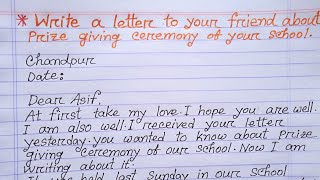 * Write a letter to your friend about
Prize giving ceremony of your school.
Chandpur
Date:
Dear Asif,
At first take my love. I hope you are well.
I am also well. I received your letter
yesterday. you wanted to know about prize
giving ceremony of our school. Now I am
writing about it.
It was held last Sunday in our school